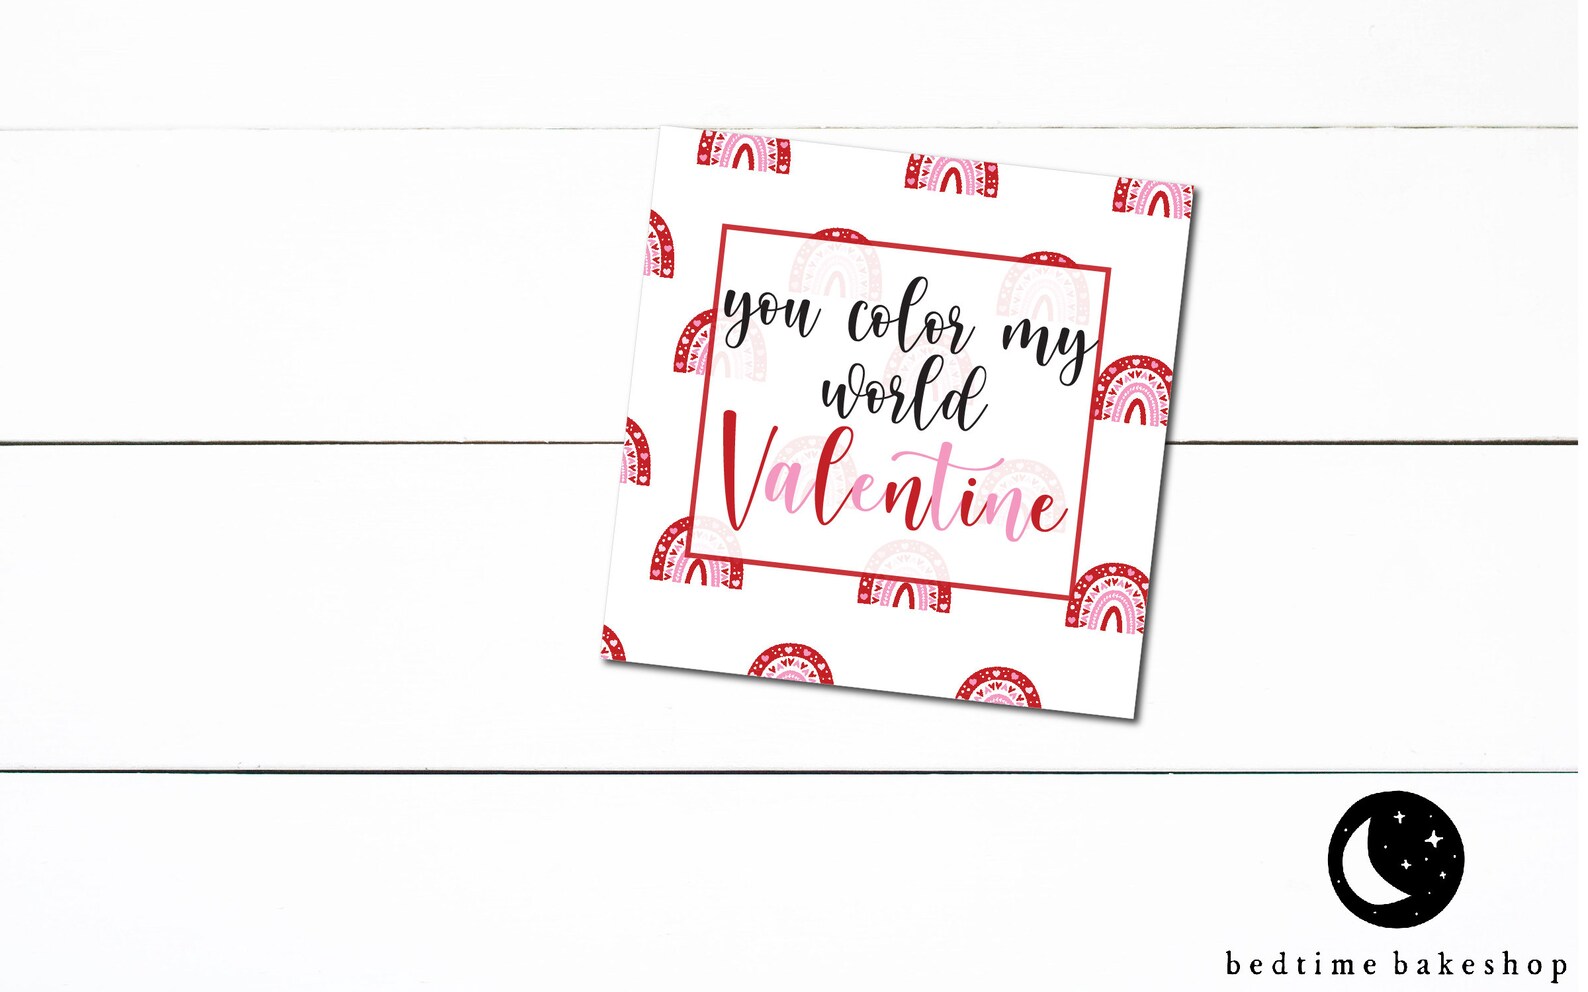 you color my
world
Valentine
bedtime bakeshop